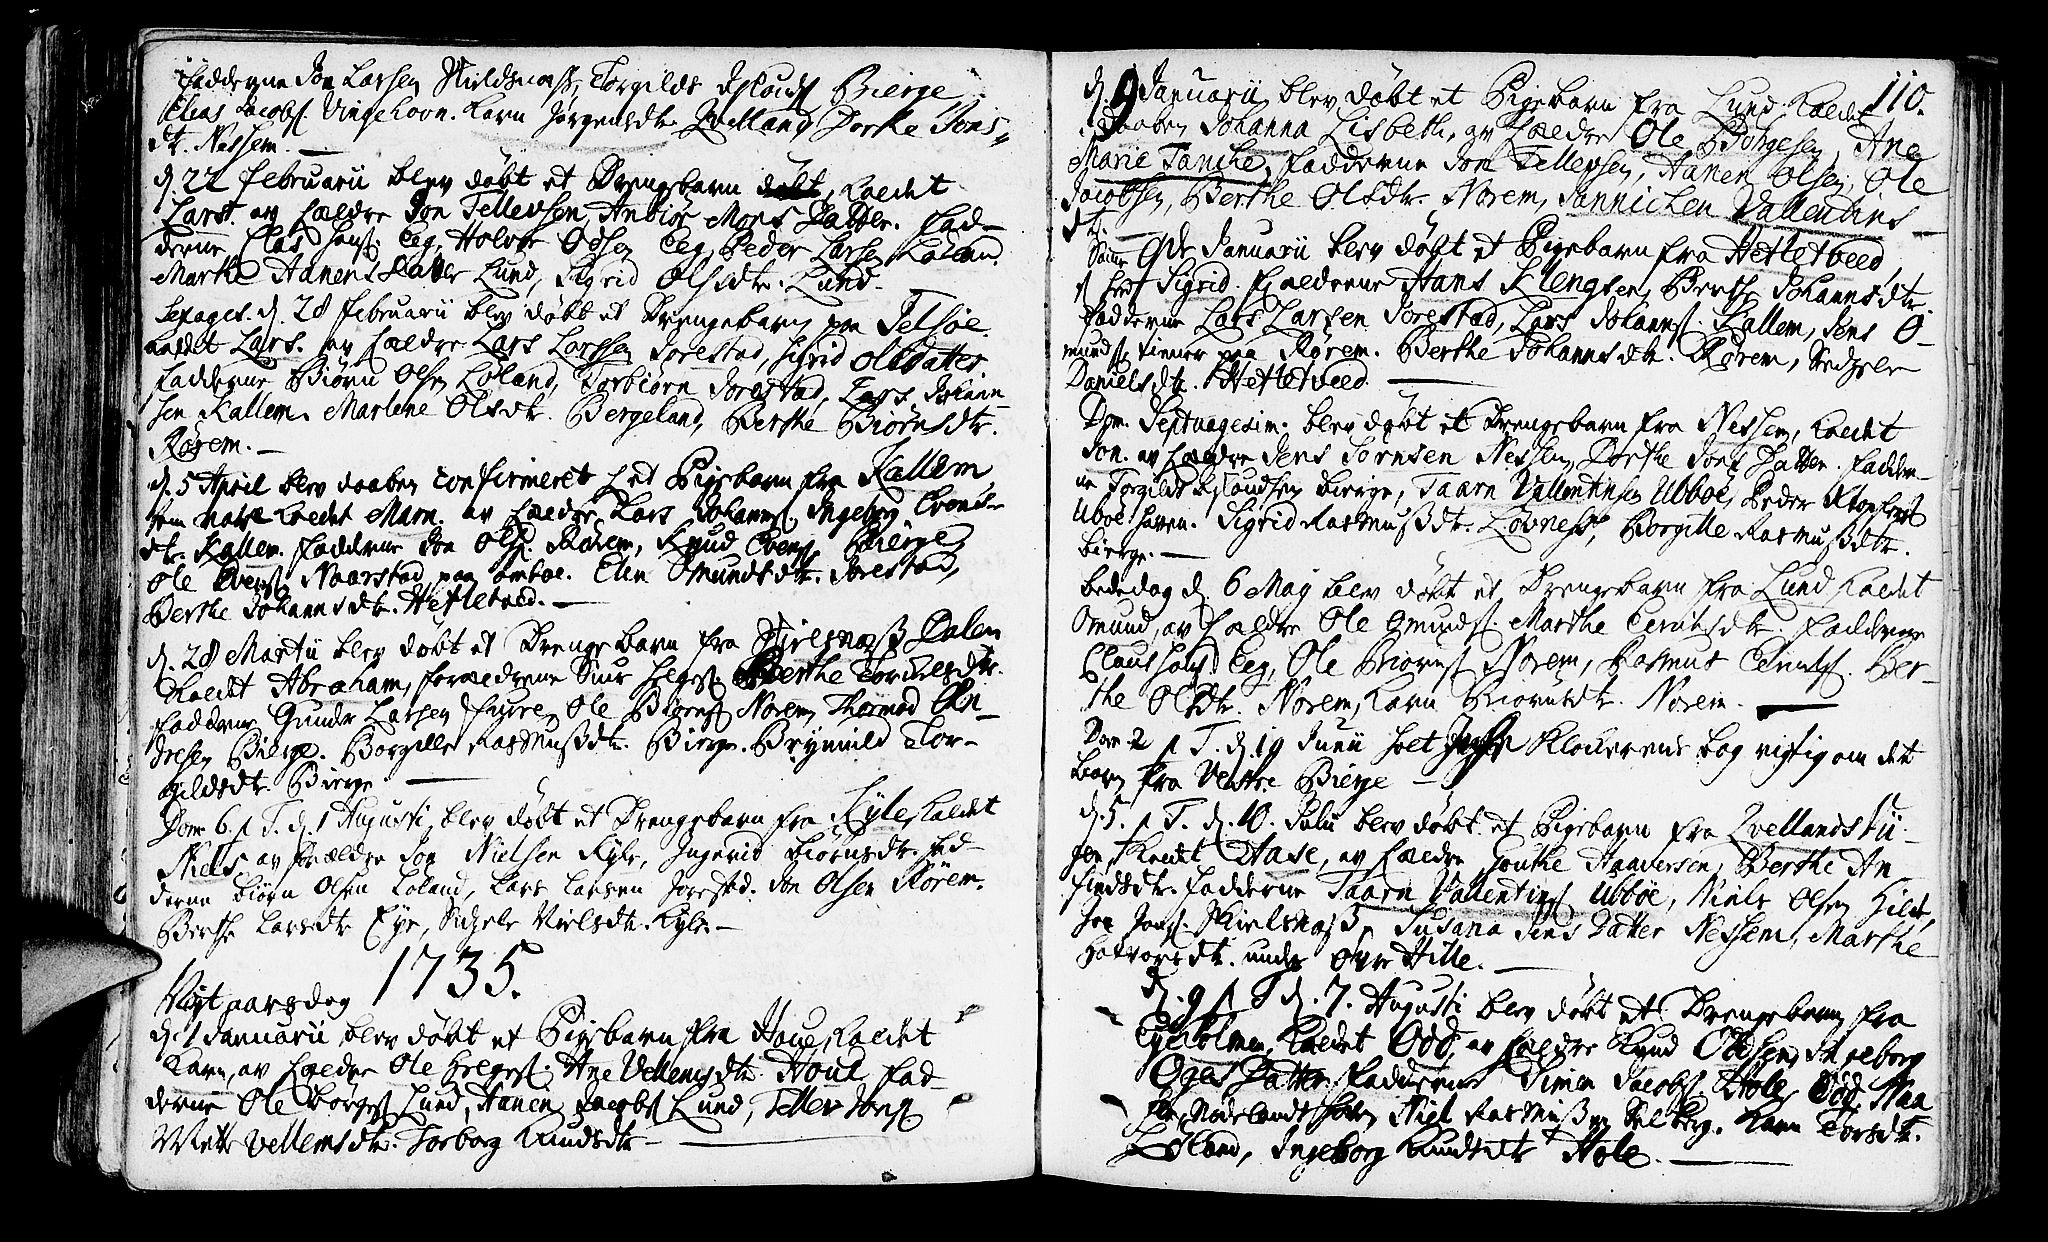 Fadderne Jon Larsen Skieldsnæss, Torgilds Knuds Bierge
Elias Jacobs. Vingehovn. Karn Jørgensdtr Joelland Dorthe Jons-
dtr. Nessem.
d. 22 Februarii blev døbt et Drengebarn kaldet
Larst. av Foreldre Jon Tellevsen, Anbiør Mons Datter. Fad-
derne Clas Hans. Eeg, Holver Odsen Eeg, Peder Larsen Loland.
Marthe Hanens datter Lund, Sigrid Olsdtr. Lund.
Sexages. d. 28 Februarii blev døbt et Drengebarn paa Telsøe
kaldet Lars. av Foreldre Lars Larssen Jorestad, Sigrid Olsdatter
Fadderne Biørn Olsen Loland, Torbiørn Jorestad, Lars Johann-
sen Kallem. Marlene Olsdtr. Bergeland, Berthe Biørnsdtr.
Rørem.
d. 5 April blev daaben confirmeret et Pigebarn fra Kallem
som kaldet Marn. av Foreldre Lars Johanns. Ingeborg
dtr. Kallem. Fadderne Jon Ols. Rørem, Knud Evens. Bierge
Ole Evens. Naarstad paa omboe. Elen Omundsdtr. Jorestad,
Berthe Johannsdtr. Hetletved.
d. 28 Martii blev døbt et Drengebarn fra Skielsnæss Dalen
kaldet Abraham, forældrene Siur Helges. Berthe Torkelsdtr.
Fadderne Gunder Larsen Ole Biørns Norem, Thormod An-
dresen Bierge. Borgille Rasmussdtr. Bierge. Brynnild Tor-
gildsdtr. Bierge
Dom 6. p T. d. 1 Augusti blev døbt et Drengebarn fra Kyle, kaldet
Niels, av Foreldre Jon Nielsen Kyle, Ingerid Biørnsdtr. Fad-
derne Biørn Olsen Loland, Lars Larsen Jorestad. Jon Olsen Rørem.
Berthe Larsdtr Eye, Sidsele Nielsdtr. Kyle.
1735.
Nyt aarsdag
d. 1 Januarii blev døbt et Pigebarn fra Houe, kaldet
Karn, av Foreldre Ole Helges. Ane Vellemsdtr. Houe Fad-
derne Ole Børges Lund, Hanen Jacobs Lund, Tellev Jons
Mette Vellemsdtr. Torborg Knudsdtr
110.
d. 9 Januarii blev døbt et Pigebarn fra Lund kaldet
i daaben Johanna Lisbeth, av Foreldre Ole Børgesen, Ane
Marie Tanche, Fadderne Jon Tellevsen, Hanen Olsen, Ole
Jacobsen, Berthe Olsdtr. Norem, Jannichen Vallentins
dtr.
Same 9de Januarii blev døbt et Pigebarn fra Hetletveed,
Sigrid. Foreldrene Hans Klengsen, Berthe Johannsdtr.
Fadderne Lars Larsen Jorestad, Lars Johanns. Kallem, Jens O-
munds. tiener paa Rørem. Berthe Johannsdtr. Rørem, Sedzele
Danielsdtr. Hetletveed.
Dom. Septuagesim. blev døbt et Drengebarn fra Nessem, kaldet
Jon. av Foreldre Jens Jornsen Nessem, Dorthe Jons Datter. Fadder-
ne Torgilds Knudsen Bierge, Taarn Vallentinsen Ubboe, Peder
Uboe haven. Sigrid Rasmussdtr. Lovness, Borgille Rasmussdtr.
Bierge.
Bededag d. 6 May blev døbt et Drengebarn fra Lund kaldet
Omund, av Foreldre Ole Omunds. Marthe dtr. Fadderne
Claus Hans. Eeg, Ole Biørns Norem, Rasmus Ber-
the Olsdtr. Norem, Karn Biørnsdtr. Norem.
Dom 2 p T. d. 19 Junii Klockerens bog rigtig om det
barn fra Vestre Bierge
d. 5. p T. d. 10. Julii blev døbt et Pigebarn fra Qvellandstu-
en, kaldet Aase, av Foreldre Goutke Haaversen, Berthe An
findsdtr. Fadderne Taarn Vallentins Ubboe, Niels Olsen Hilde,
Jens. Skielsnæss, Susana Jens Datter Nessem, Marthe
Halvorsdtr. under Øvre Hille.
d. 9 p T d. 7. Augusti blev døbt et Drengebarn fra
Eyeholmen, kaldet Odd, av Foreldre Knud Oddsen, Ingeborg
Oges Datter. Fadderne Simen Jacobs. Hole, Odd Haa
Nadelands Niel Rasmussen Selberg. Karn Torsdtr.
Loland, Ingeborg Knudsdtr Hole.